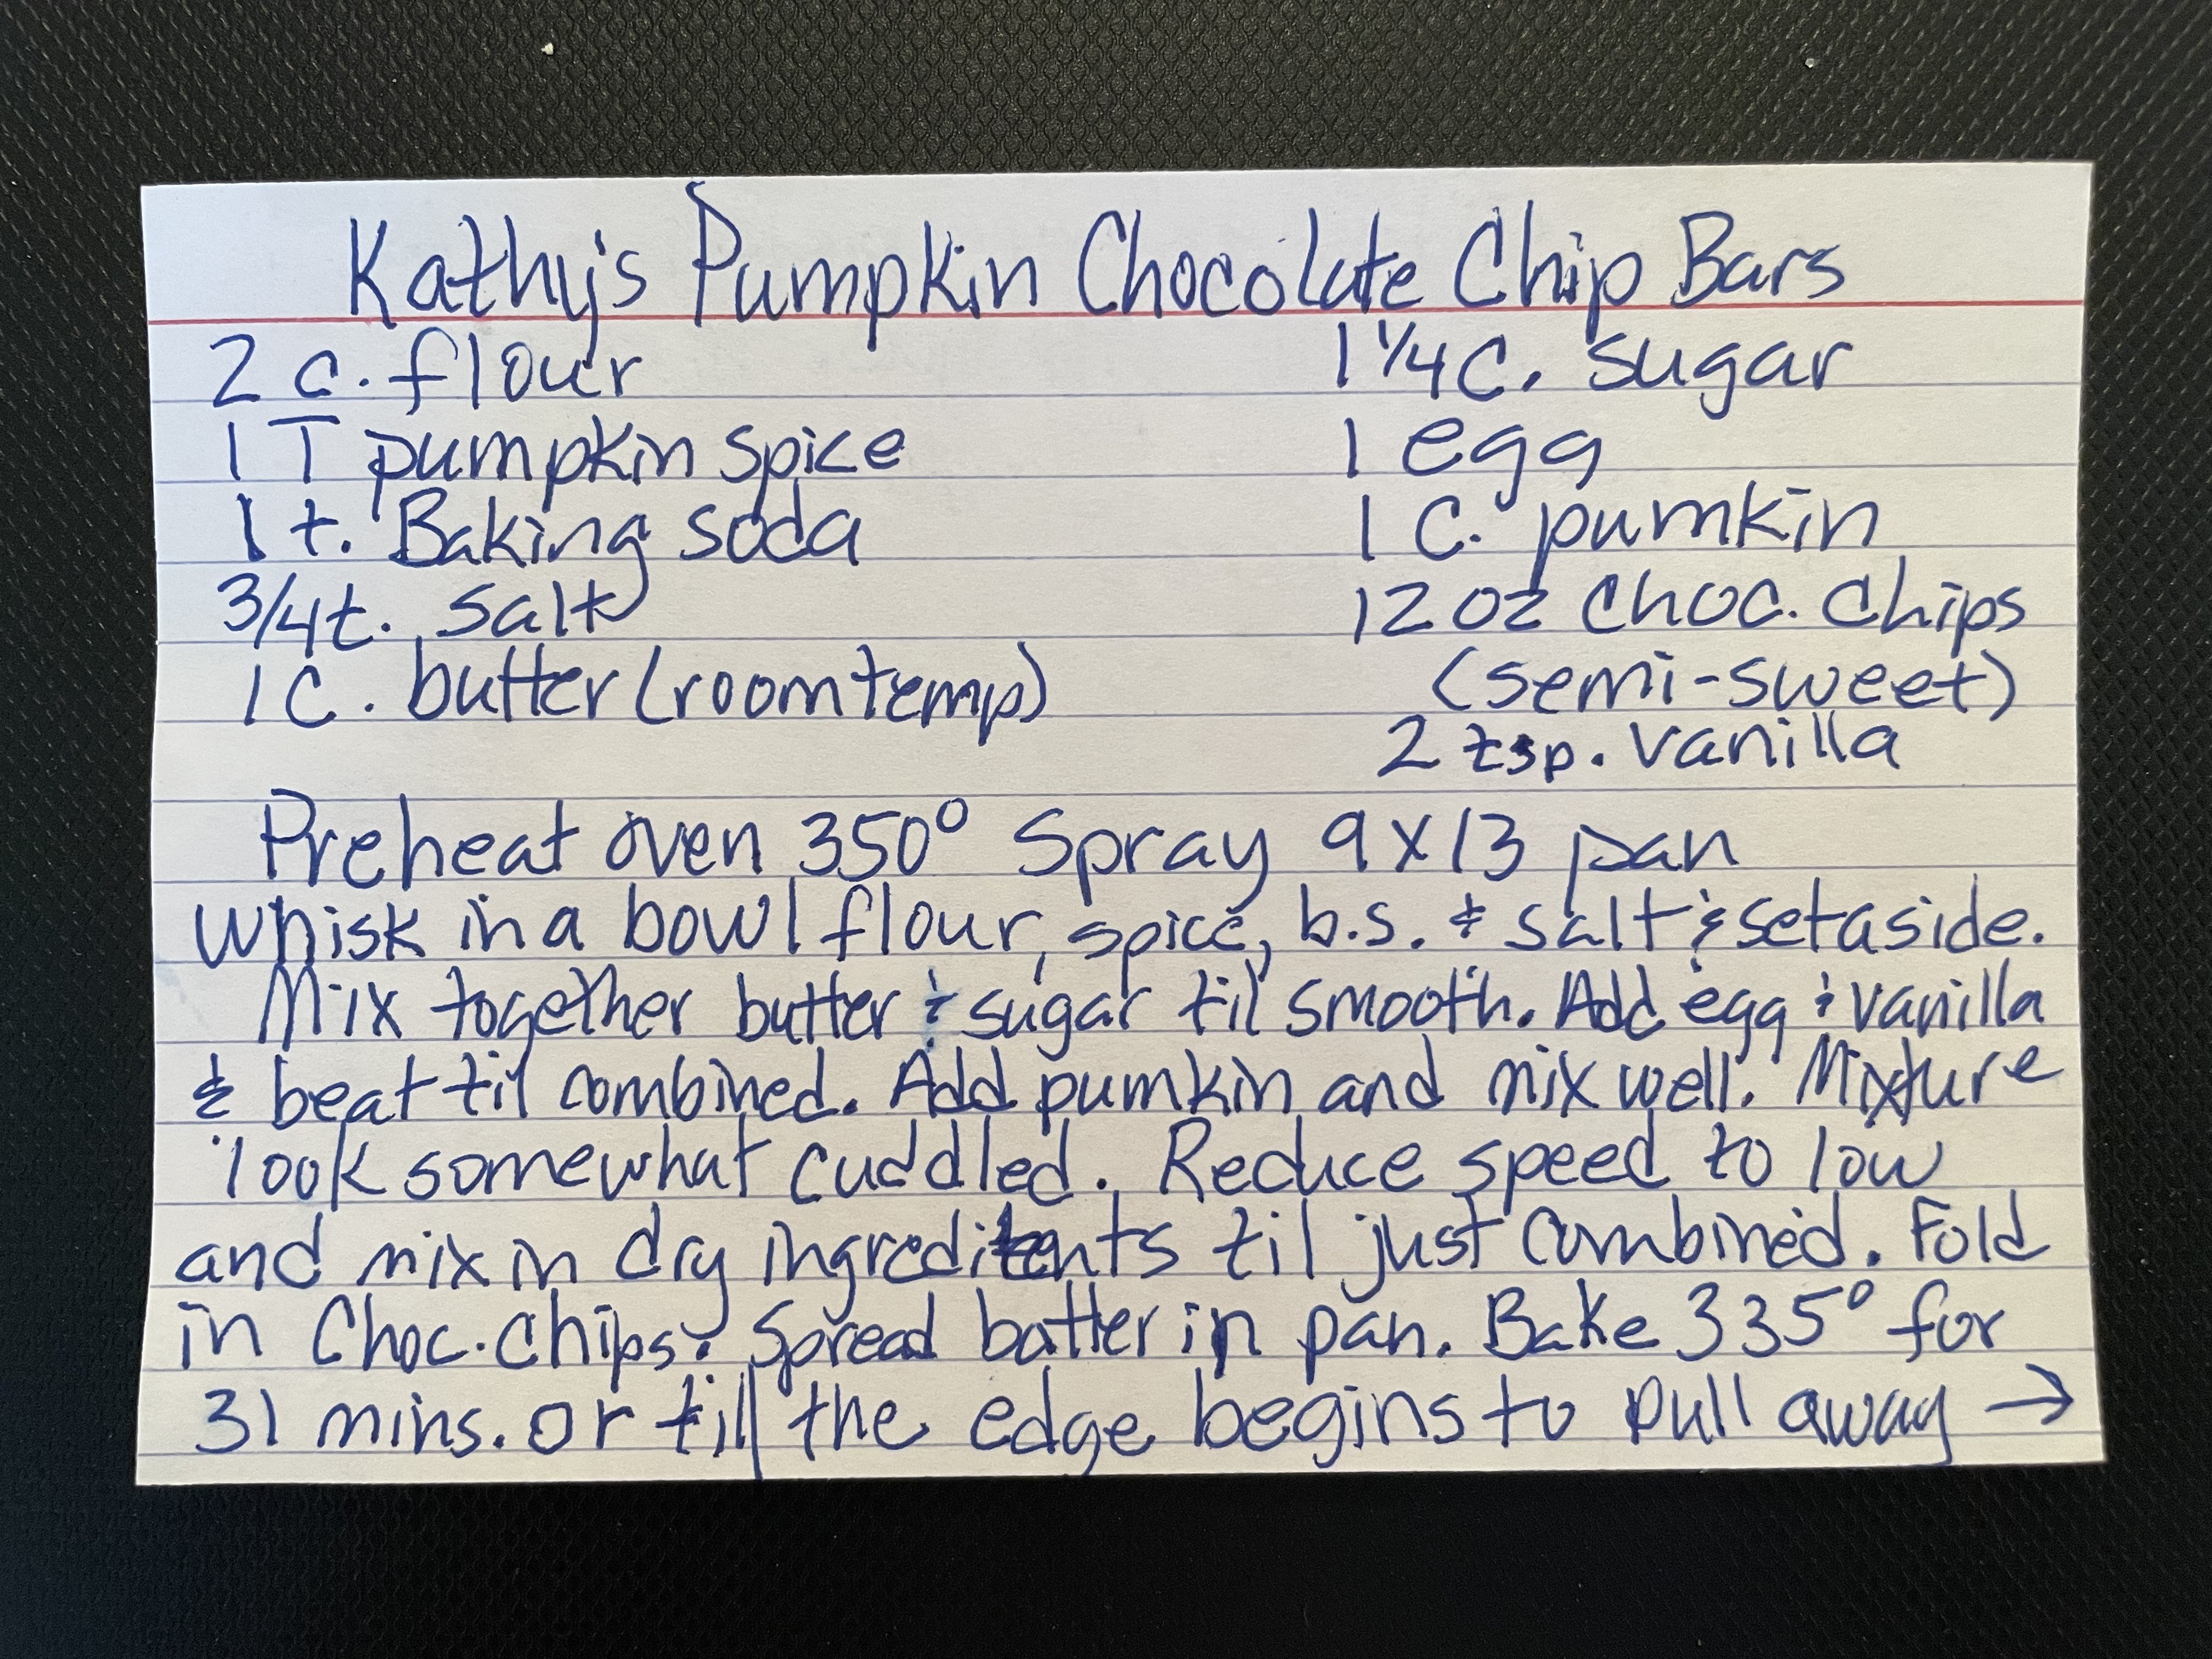 Kathy's Pumpkin Chocolate Chip Bars
2 c. flour
1 T pumpkin spice
1 t. Baking soda
3/4 t. salt
1 C. butter (room temp)
1 1/4 C. sugar
1 egg
1 C. pumkin
12 oz choc. chips
(semi-sweet)
2 tsp. vanilla
Preheat oven 350° Spray 9 x 13 pan
whisk in a bowl flour, spice, b.s. & salt & set aside.
Mix together butter & sugar til smooth. Add egg & vanilla
& beat til combined. Add pumkin and mix well. Mixture
look somewhat cuddled. Reduce speed to low
and mix in dry ingredients til just combined. Fold
in Choc. chips. Spread batter in pan. Bake 335° for
31 mins. or till the edge begins to pull away →